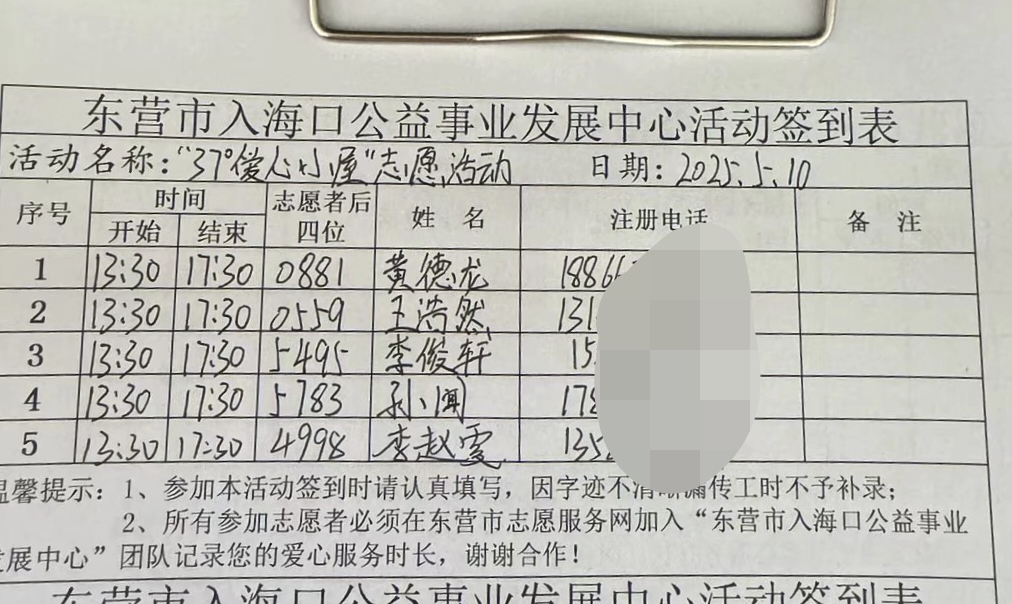 东营市入海口公益事业发展中心活动签到表
活动名称："37°爱心小屋"志愿活动 日期：2025.5.10
序号 时间 志愿者后四位 姓 名 注册电话 备 注
开始 结束
1 13:30 17:30 0881 黄德龙 1886
2 13:30 17:30 0559 王浩然 131
3 13:30 17:30 5495 李俊轩 15
4 13:30 17:30 5783 孙小闻 178
5 13:30 17:30 4998 李赵雯 135
温馨提示：1、参加本活动签到时请认真填写，因字迹不清晰漏传工时不予补录；
2、所有参加志愿者必须在东营市志愿服务网加入“东营市入海口公益事业
发展中心”团队记录您的爱心服务时长，谢谢合作！
东营市入海口公益事业发展中心活动签到表